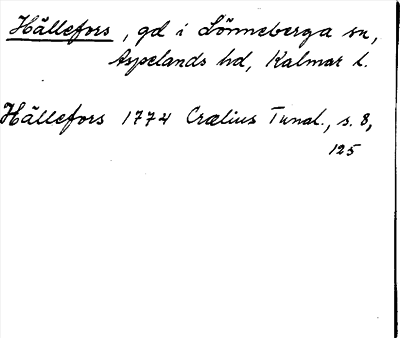 Hällefors, gd i Lönneberga sn,
Aspelands hd, Kalmar l.
Hällefors 1774 Crælius Tunal., s. 8,
125